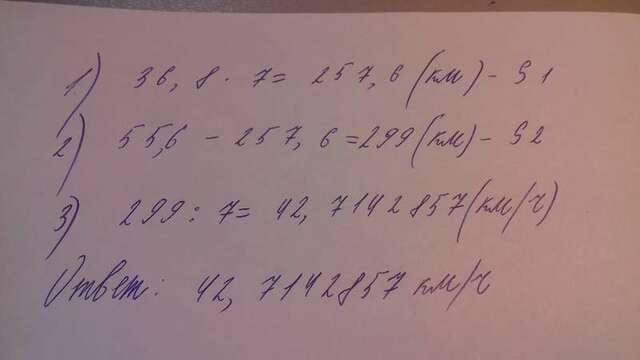 1) 36,8 · 7 = 257,6 (км) - S1
2) 55,6 - 257,6 = 299 (км) - S2
3) 299 : 7 = 42,7142857 (км/ч)
Ответ: 42,7142857 км/ч